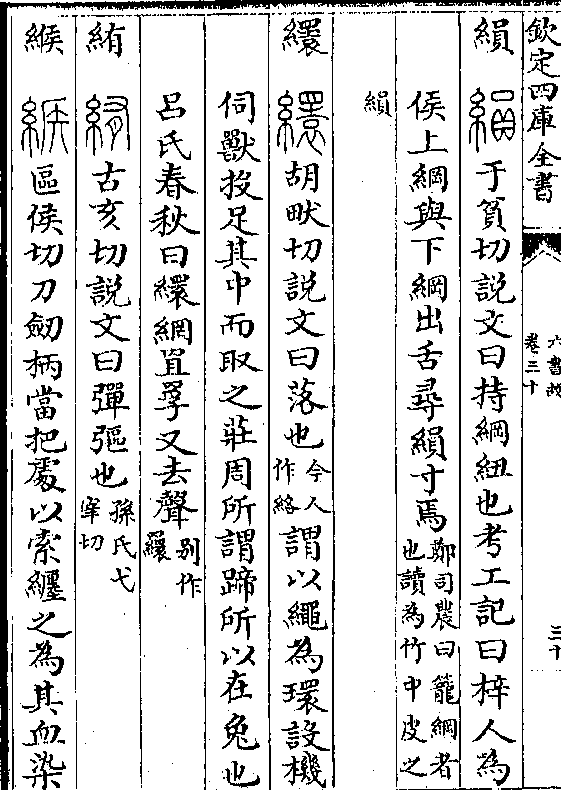 欽定四庫全書
六書故
卷三十
三十
縜 于筼切說文曰持綱紐也考工記曰梓人為
侯上綱與下綱出舌尋縜寸焉鄭司農曰籠綱者
也讀為竹中皮之
縜
繯 胡畎切說文曰落也今人
作絡謂以繩為環設機
伺獸投足其中而取之莊周所謂蹄所以在兔也
呂氏春秋曰繯網罝罦又去聲别作
䍚
絠 古亥切說文曰彈彄也孫氏弋
宰切
緱 區侯切刀劒柄當把處以索纒之為其血染